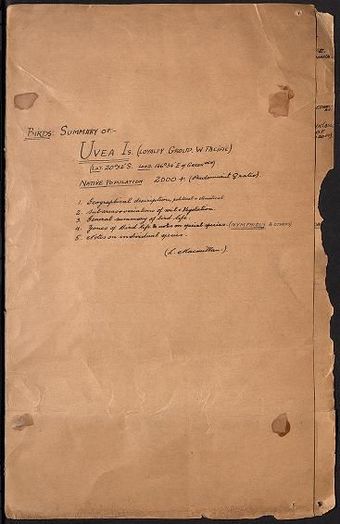 BIRDS: SUMMARY OF:-
UVEA IS. (LOYALTY GROUP. W. PACIFIC)
NATIVE POPULATION 2000 +.
1. Geographical description, political & climatical
2. Subareas or variations of soil & Vegetation.
3. General summary of bird life.
4. Zones of Bird life & notes on special species. (NYMPHICUS & OTHERS)
5. Notes on individual species.
(L. Macmillan.)